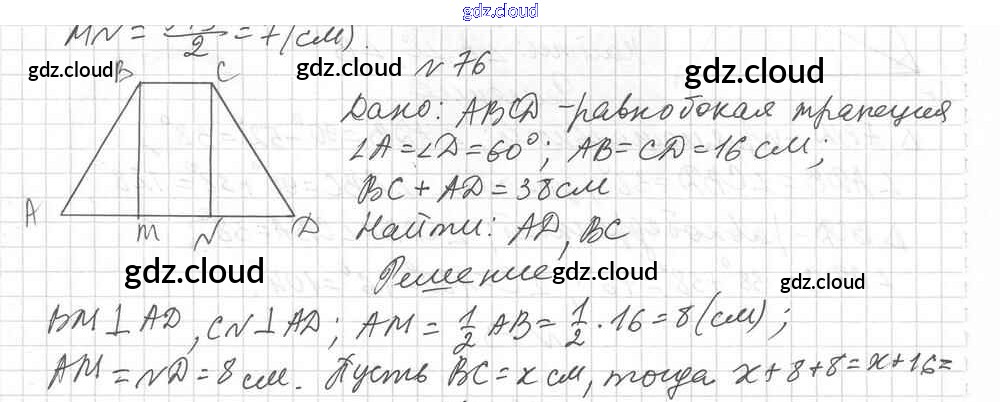 gdz.cloud
MN = —/2 = 7(см).
gdz.cloud gdz.cloud N 76 gdz.cloud
B C
Дано: ABCD - равнобокая трапеция
∠A = ∠D = 60°; AB = CD = 16 см;
BC + AD = 38 см
A M N D Найти: AD, BC
gdz.cloud Решение gdz.cloud gdz.cloud
BM ⊥ AD, CN ⊥ AD; AM = 1/2 AB = 1/2 · 16 = 8 (см);
AM = ND = 8 см. Пусть BC = x см, тогда x + 8 + 8 = x + 16 =